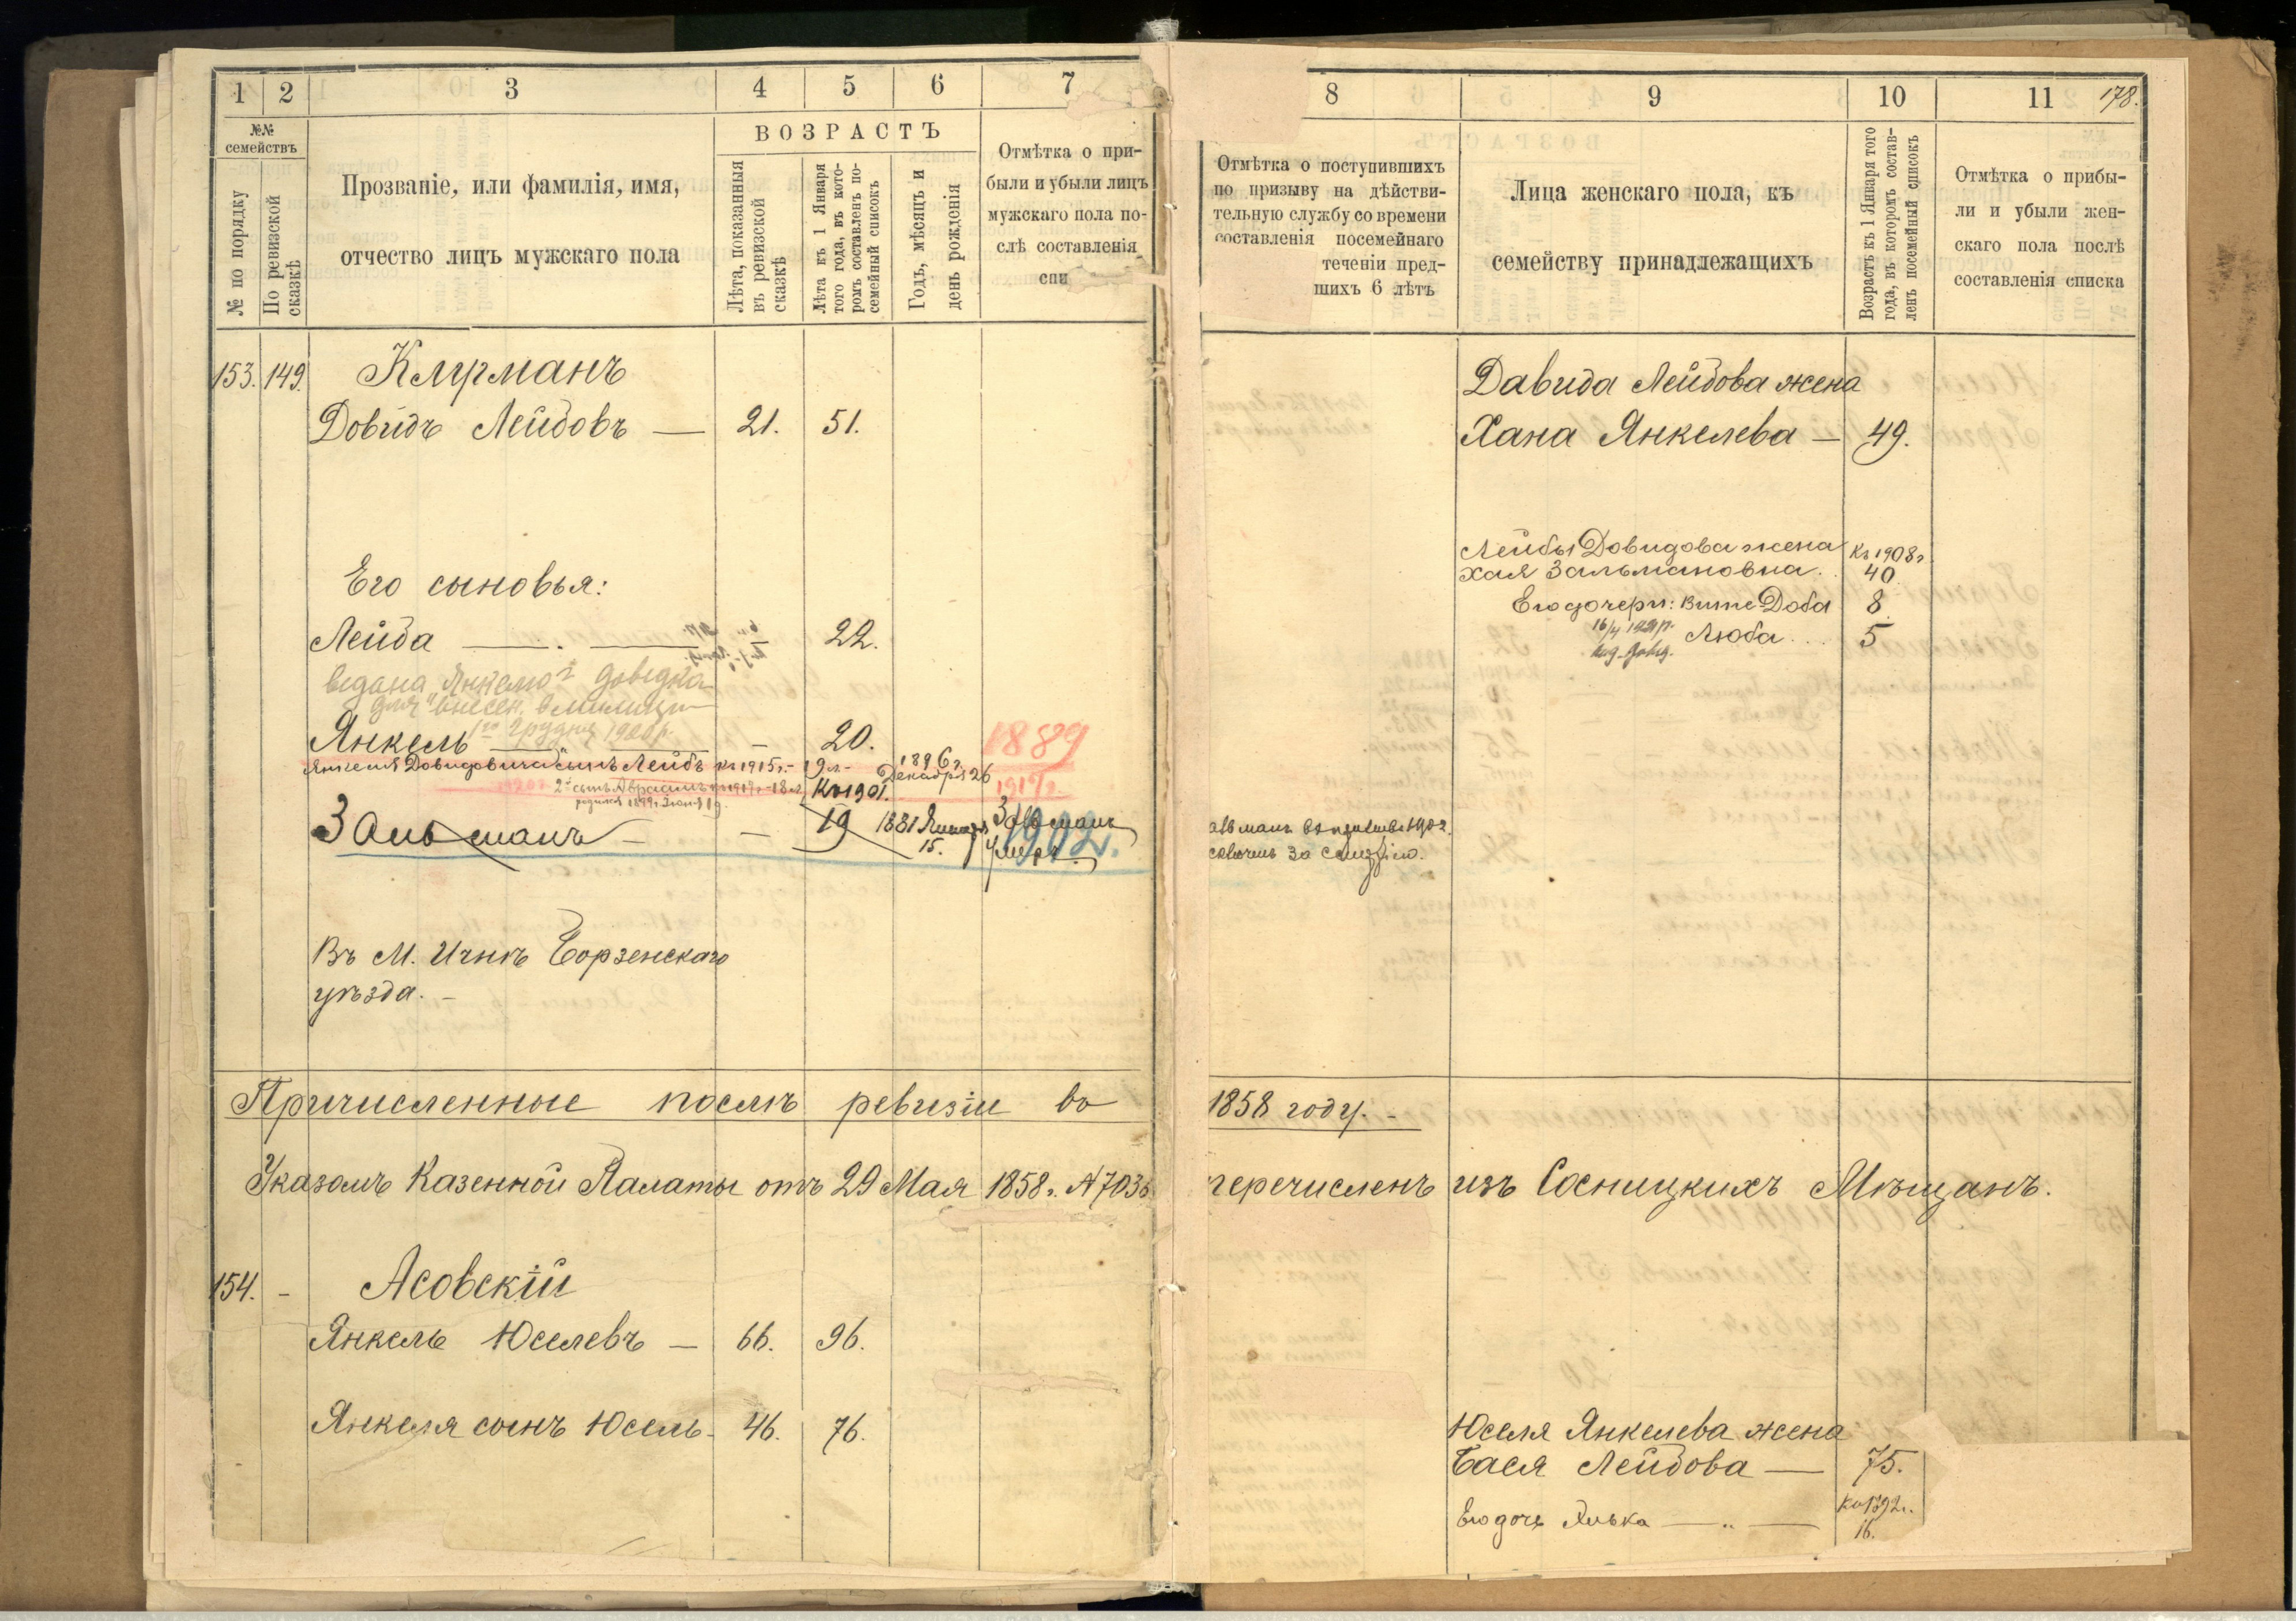 1 2 3 4 5 6 7
№№ семействъ
№ по порядку
По ревизской сказкѣ
Прозваніе, или фамилія, имя,
отчество лицъ мужскаго пола
ВОЗРАСТЪ
Лѣта, показанныя
въ ревизской
сказкѣ
Лѣта къ 1 Января
того года, въ кото-
ромъ составленъ по-
семейный списокъ
Годъ, мѣсяцъ и
день рожденія
Отмѣтка о при-
были и убыли лицъ
мужскаго пола по-
слѣ составленія
спи
153. 149. Клурманъ
Довидъ Лейбовъ — 21. 51.
Его сыновья:
Лейба — 22.
Янкель — — 20. 1889
Янкеля Довидовича сынъ Лейбъ къ 1915 г. - 19 л. - 1896 г.
Декабря 26
2й сынъ Абрамъ къ 1917 г. - 18 л. 1917 г.
родился 1899 г. Іюня 19
Къ 1901.
Зальманъ — — 19 1881 Января 15. Зальманъ умеръ. 1902.
Въ М. Ичнѣ Борзенскаго
уѣзда. -
Причисленные послѣ ревизіи въ
Указомъ Казенной Палаты отъ 29 Мая 1858 г. № 7036
154. - Асовскій
Янкель Юселевъ — 66. 96.
Янкеля сынъ Юсель - 46. 76.
8 9 10 11 178.
Отмѣтка о поступившихъ
по призыву на дѣйстви-
тельную службу со времени
составленія посемейнаго
теченіи пред-
шихъ 6 лѣтъ
Лица женскаго пола, къ
семейству принадлежащихъ
Возрастъ къ 1 Января того
года, въ которомъ состав-
ленъ посемейный списокъ
Отмѣтка о прибы-
ли и убыли жен-
скаго пола послѣ
составленія списка
Давида Лейбова жена
Хана Янкелева — 49.
Лейбы Довидова жена Къ 1908 г.
Хая Залмановна. 40.
Его дочери: Доба 8
Люба . . . 5
1902.
1858 году. -
перечисленъ изъ Сосницкихъ Мѣщанъ.
Юселя Янкелева жена
Бася Лейбова — 75.
Его дочь — " — Къ 1892 г.
16.